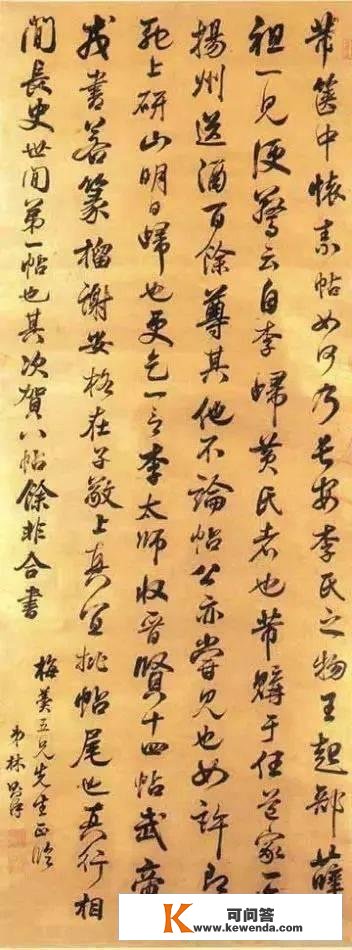 芾篋中懷素帖如何乃長安李氏之物王起部薛
祖一見便驚云自李歸黃氏者也芾購于任道家一
揚州送酒百餘尊其他不論帖公亦嘗見也如許即
馳上研山明日歸也更乞一言李太師收晉賢十四帖武帝
戎書若篆榴謝安格在子敬上真宜批帖尾也真行相
間長史世間第一帖也其次賀八帖餘非合書
五兄先生正
林則徐
K 可问答
KEWENDA.COM